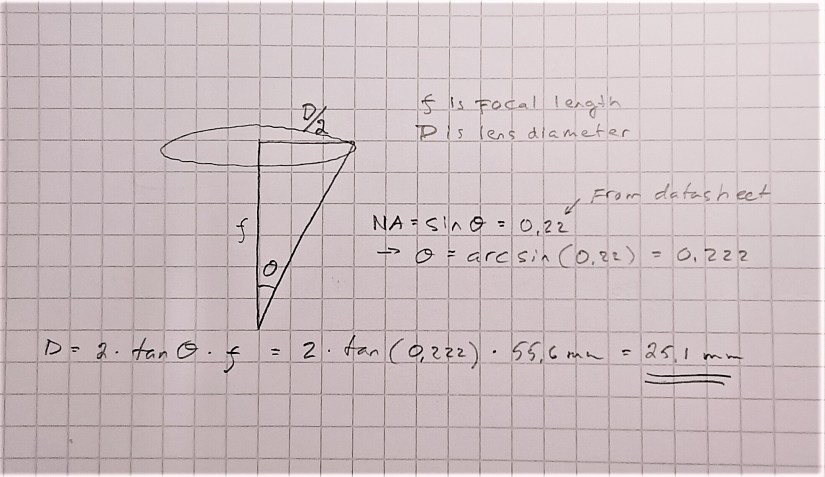 D/2
f is Focal length
D is lens diameter
From datasheet
f
NA = sin θ = 0,22
→ θ = arcsin(0,22) = 0,222
θ
D = 2 · tan θ · f = 2 · tan(0,222) · 55,6 mm = 25,1 mm